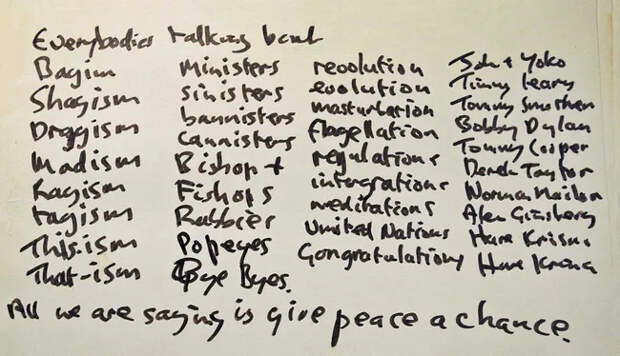 Everybodies talking bout
Bagism
Shagism
Draggism
Madism
Ragism
tagism
This-ism
That-ism
Ministers
sinisters
bannisters
cannisters
Bishop +
Fishops
Rabbies
Popeyes
Bye Byes.
revolution
evolution
masturbation
flagellation
regulations
intergrations
meditations
United Nations
Congratulations
John + Yoko
Timmy Leary
Tommy Smothers
Bobby Dylan
Tommy Cooper
Derek Taylor
Norman Mailor
Alen Ginsberg
Hare Krisna
Hare
All we are saying is give peace a chance.